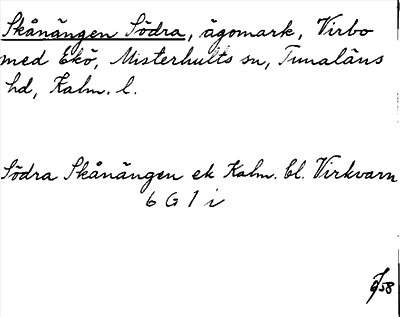 Skånängen Södra, ägomark, Virbo
med Ekö, Misterhults sn, Tunaläns
hd, Kalm. l.
Södra Skånängen ek Kalm. bl. Virkvarn
6 G 1 i
58